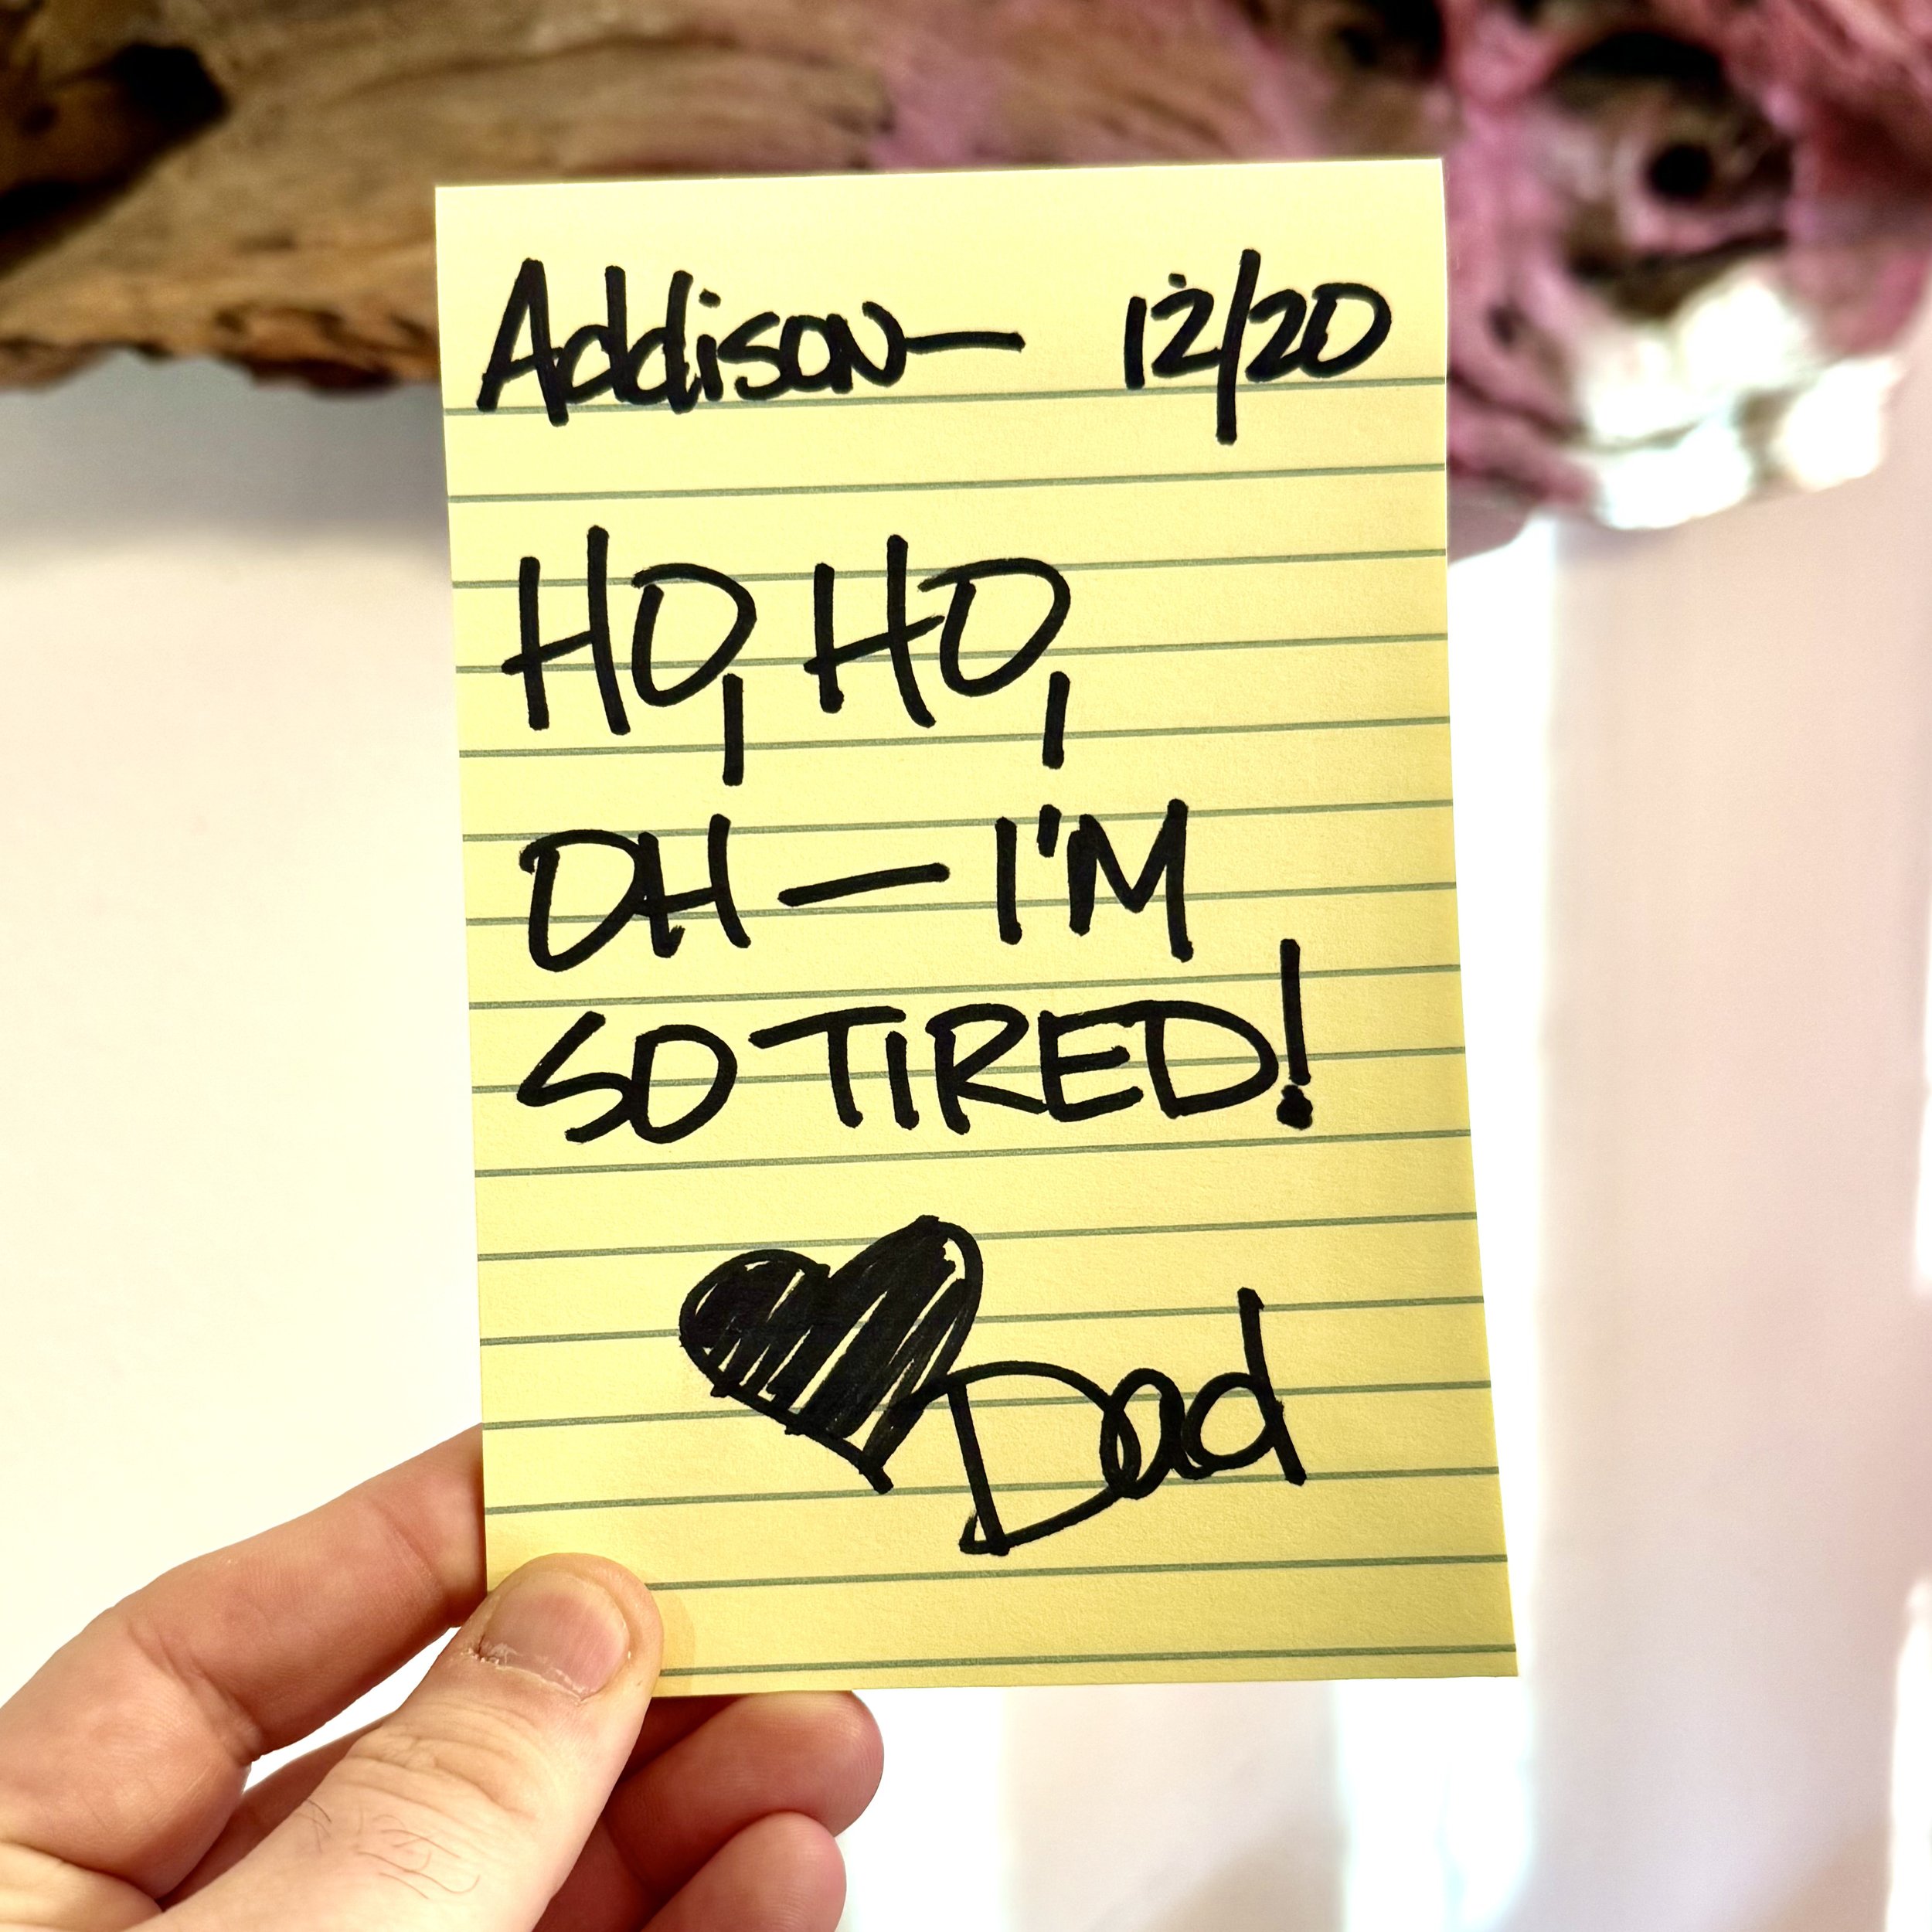 Addison— 12/20
HO, HO,
OH — I'M
SO TIRED!
Dad